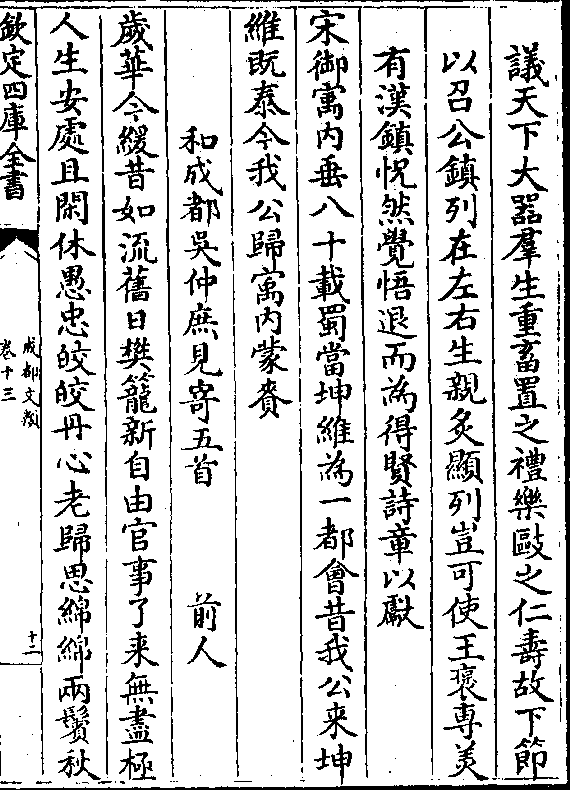 議天下大器羣生重畜置之禮樂敺之仁壽故下節
以召公鎮列在左右生親炙顯列豈可使王襃専美
有漢鎮怳然覺悟退而為得賢詩章以獻
宋御㝢内垂八十載蜀當坤維為一都會昔我公来坤
維既泰今我公歸㝢内蒙賚
和成都吳仲庶見寄五首 前人
歲華今緩昔如流舊日樊籠新自由官事了来無盡極
人生安處且閑休愚忠皎皎丹心老歸思綿綿兩鬢秋
欽定四庫全書
成都文類
卷十三
十二